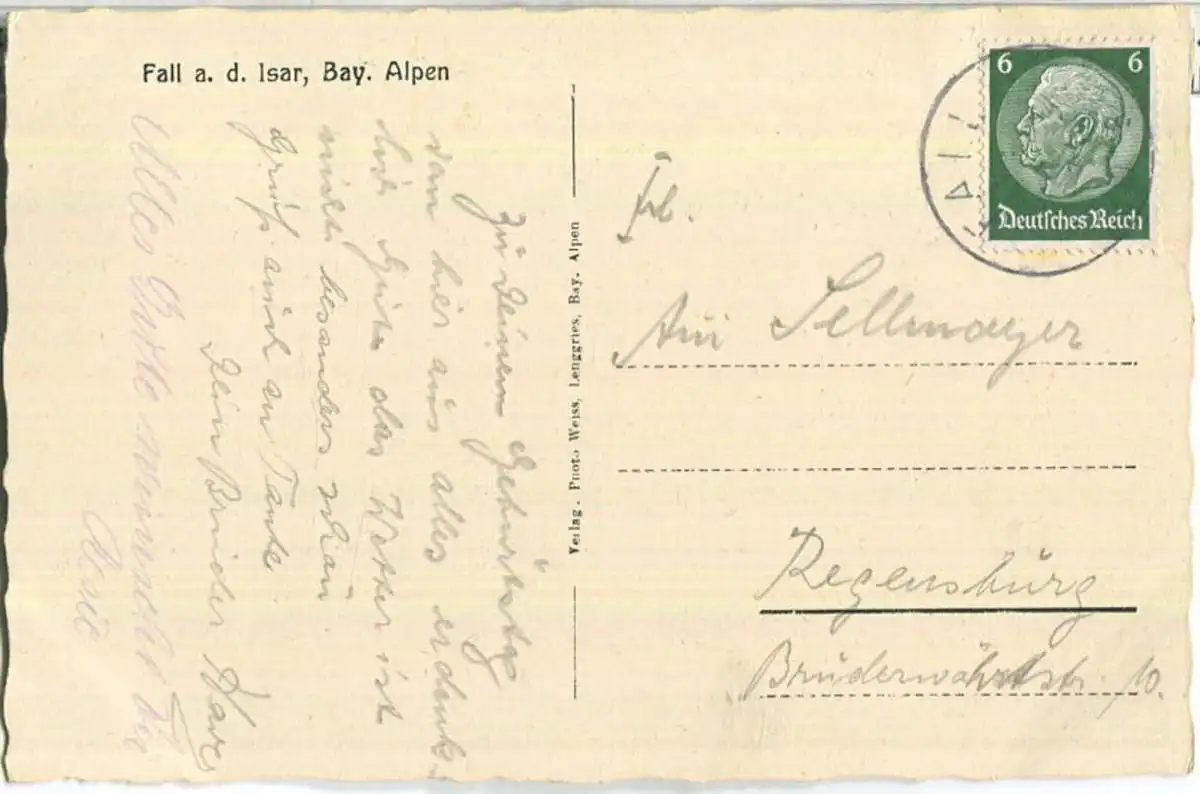 Fall a. d. Isar, Bay. Alpen
Zu Deinem Geburtstag
von hier aus alles erdenk-
lich Gute das Wetter ist
nicht besonders schön
Gruß auch an Tante
Dein Bruder
Alles Gute wünscht Dir
Verlag - Photo Weiss, Lenggries, Bay. Alpen
6 6
Deutsches Reich
Frl.
Sellmayer
Regensburg
Brüderwöhrdstr. 10.